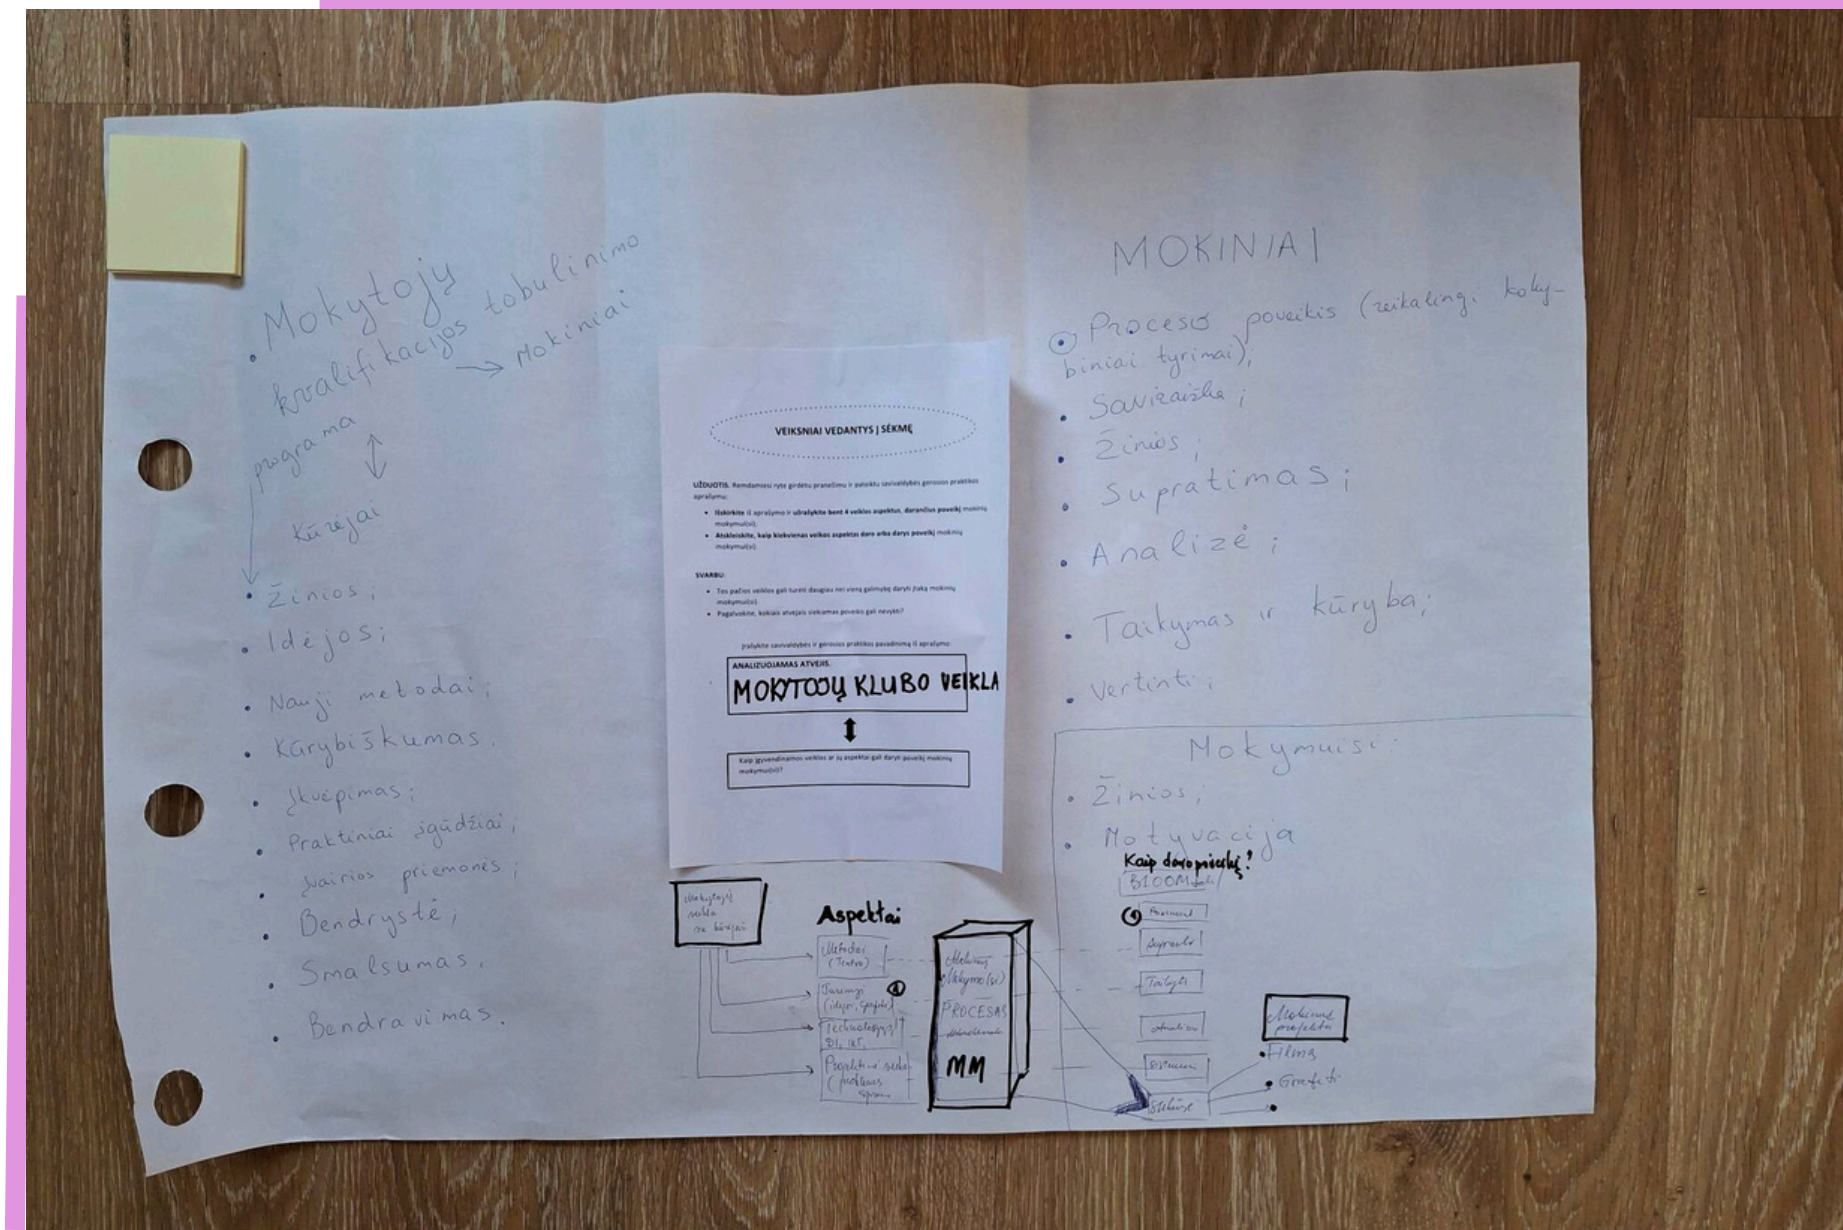 Mokytojų
kvalifikacijos tobulinimo
programa
→ Mokiniai
Kūrėjai
• Žinios;
• Idėjos;
• Nauji metodai;
• Kūrybiškumas.
• Įkvėpimas;
• Praktiniai įgūdžiai;
• Įvairios priemonės;
• Bendrystė;
• Smalsumas.
• Bendravimas.
VEIKSNIAI VEDANTYS Į SĖKMĘ
UŽDUOTIS. Remdamiesi ryte girdėtu pranešimu ir pateiktu savivaldybės gerosios praktikos
aprašymu:
• Išskirkite iš aprašymo ir užrašykite bent 4 veiklos aspektus, darančius poveikį mokinių
mokymui(si);
• Atskleiskite, kaip kiekvienas veiklos aspektas daro arba darys poveikį mokinių
mokymui(si).
SVARBU:
• Tos pačios veiklos gali turėti daugiau nei vieną galimybę daryti įtaką mokinių
mokymui(si).
• Pagalvokite, kokiais atvejais siekiamas poveikis gali nevykti?
Įrašykite savivaldybės ir gerosios praktikos pavadinimą iš aprašymo:
ANALIZUOJAMAS ATVEJIS.
MOKYTOJŲ KLUBO VEIKLA
Kaip įgyvendinamos veiklos ar jų aspektai gali daryti poveikį mokinių
mokymui(si)?
MOKINIAI
• Proceso poveikis (reikalingi koky-
biniai tyrimai);
• Saviraiška;
• Žinios;
• Supratimas;
• Analizė;
• Taikymas ir kūryba;
• Vertinti;
Mokymuisi:
• Žinios;
• Motyvacija
Kaip daro poveikį?
BLOOM
Mokytojų
veikla
su kūrėjais
Aspektai
Metodai
(Teatro)
Turinys
Technologijos
DI, IKT,
PROCESAS
MM
Taikyti
Mokinių
projektai
• Filmą
• Grafiti
•